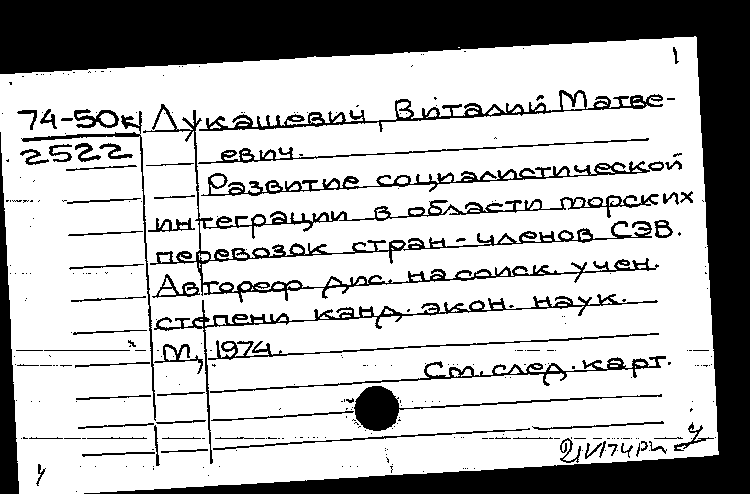 1
74-50к Лукашевич, Виталий Матве-
2522 евич.
Развитие социалистической
интеграции в области морских
перевозок стран-членов СЭВ.
Автореф. дис. на соиск. учен.
степени канд. экон. наук.
М., 1974.
См. след. карт.